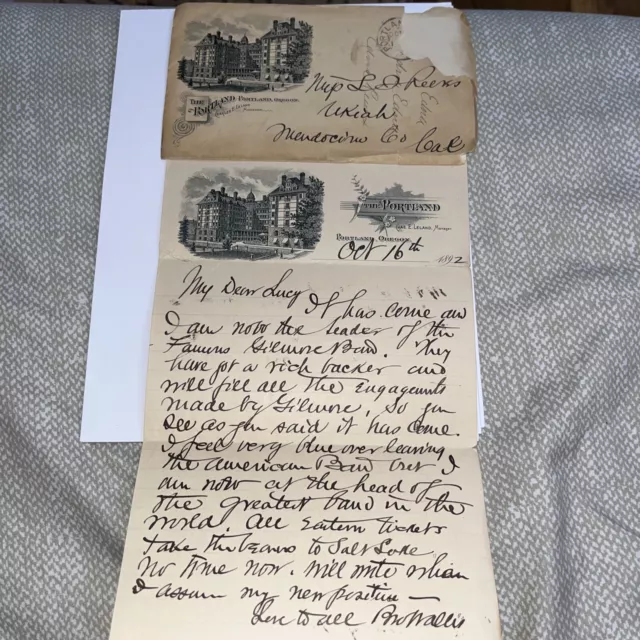 THE PORTLAND, PORTLAND, OREGON.
Miss L. D. Reeves
Ukiah
Mendocino Co
Cal
THE PORTLAND
CHAS. E. LELAND, Manager
PORTLAND, OREGON.
Oct 16th 1892
My Dear Lucy
It has come and
I am now the leader of the
Famous Gilmore Band. They
have got a rich backer and
will fill all the Engagements
made by Gilmore, So you
see as you said it has come.
I feel very blue over leaving
the American Band but I
am now at the head of
the greatest band in the
world. All Eastern tickets
take the to Salt Lake
No time now. Will write when
I assume my new position —
Love to all